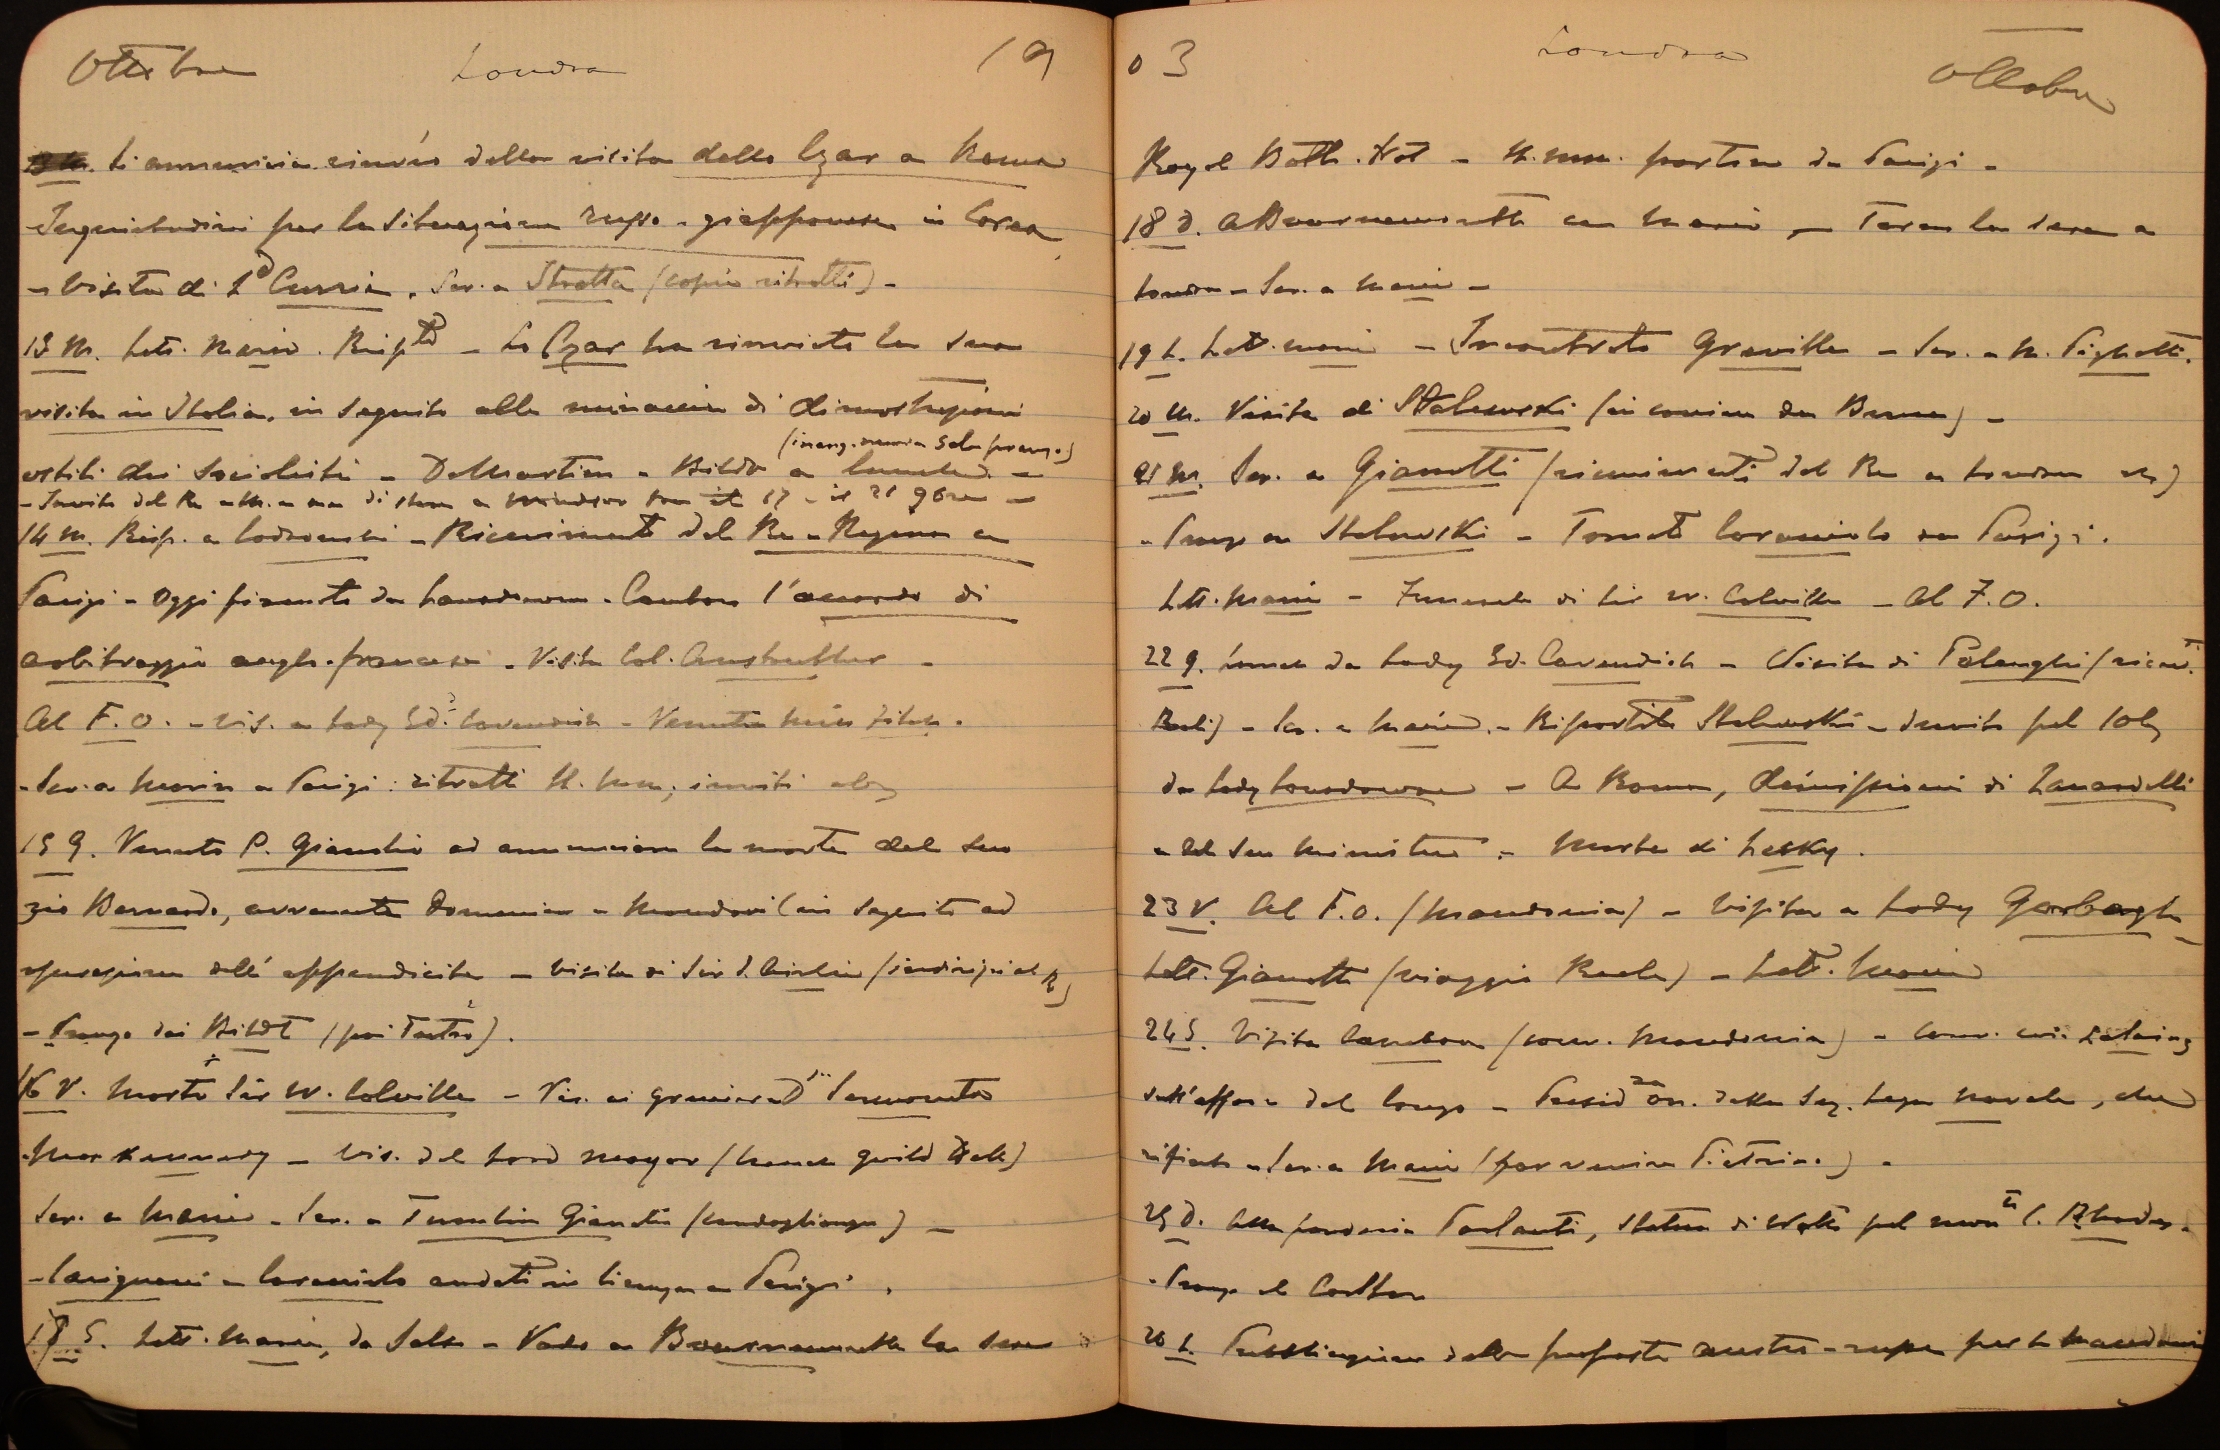 Ottobre Londra 19
Si annuncia rinvio della visita dello Czar a Roma
Inquietudini per la situazione russo-giapponese in Corea
- Visita di Ld Currie. Scr. a Stratta (copie ritratti) -
13 M. Lett. Maria. Rispta - Lo Czar ha rinviato la sua
visita in Italia, in seguito alle minaccie di dimostrazioni
(inaug. nuova sala pranzo)
ostili dei socialisti - DeMartino e Bildt a lunch -
- Invito del Re a M. e me di stare a Windsor dal 17 al 21 9bre -
14 M. Risp. a Codronchi - Ricevimento del Re e Regina a
Parigi - Oggi firmato da Lansdowne e Cambon l'accordo di
arbitraggio anglo-francese - Visita Col. Anstruther -
Al F.O. - Vis. a Lady Ed. Cavendish - Venuta Miss
- Scr. a Maria a Parigi: ritratti inviti
15 G. Venuto P. Giaudio ad annunciare la morte del suo
zio Bernardo, avvenuta Domenica a Mondovì (in seguito ad
operazione dell'appendicite - Visita di Sir (indirizzi al Re)
- Pranzo dai Bildt (poi Teatro).
16 V. Morto Sir W. Colville - Vis. ai Sermoneta
Kennedy - Vis. del Lord Mayor (lunch Guild Hall)
Scr. a Maria - Scr. a (condoglianze) -
- Carignani e Coraniolo andati in licenza a Parigi.
17 S. Lett. Maria, da Salso - Vado a Bournemouth la sera
03 Londra Ottobre
Royal Bath Hot - partono da Parigi -
18 D. A Bournemouth con Mario - Torno la sera a
Londra - Scr. a Maria -
19 L. Lett. Maria - Incontrato Greville - Scr. a M. Pighetti.
20 M. Visita di Stalewski (in da Berna) -
21 M. Scr. a Gianotti (ricevimenti del Re a Londra etc)
- Pranzo a Stalewski - Tornato Coraniolo da Parigi.
Lett. Maria - Funerale di Sir W. Colville - Al F.O.
22 G. Lunch da Lady Ed. Cavendish - Visita di Polenghi (ricevti
Reali) - Scr. a Maria - Ripartito Stalewski - Invito pel 10
da Lady Lansdowne - A Roma, dimissioni di Zanardelli
e del suo Ministero - Morte di Lecky.
23 V. Al F.O. (Macedonia) - Visita a Lady
Lett. Gianotti (viaggio Reale) - Lett. Maria
24 S. Visita Cambon (conv. Macedonia) - Conv. con
sull'affare del Congo - Presidza on. della Sez. Lega Navale, che
rifiuto - Scr. a Maria (far venire Pietrino) -
25 D. Alla fonderia Parlanti, statua di Watts pel monto C. Rhodes -
- Pranzo al Carlton
26 L. Pubblicazione delle proposte austro-russe per la Macedonia